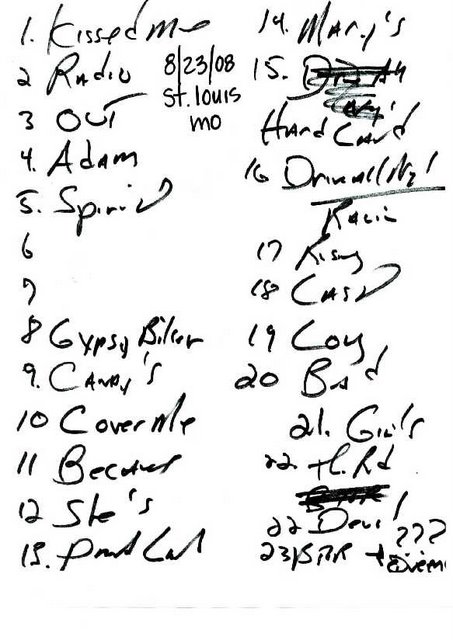 1. Kissed Me
2 Radio
3 OUT
4. Adam
5. Spirit
6
7
8 Gypsy Biker
9. Candy's
10 Cover Me
11 Because
12 She's
13.
8/23/08
St. Louis
mo
14. Mary's
15.
Hard Land
16 Drive All Nyt
Racin
17 Rising
18 Cad
19 Long
20 Bad
21. Girls
22. T. Rd
22 Devil
23 BTR + ???